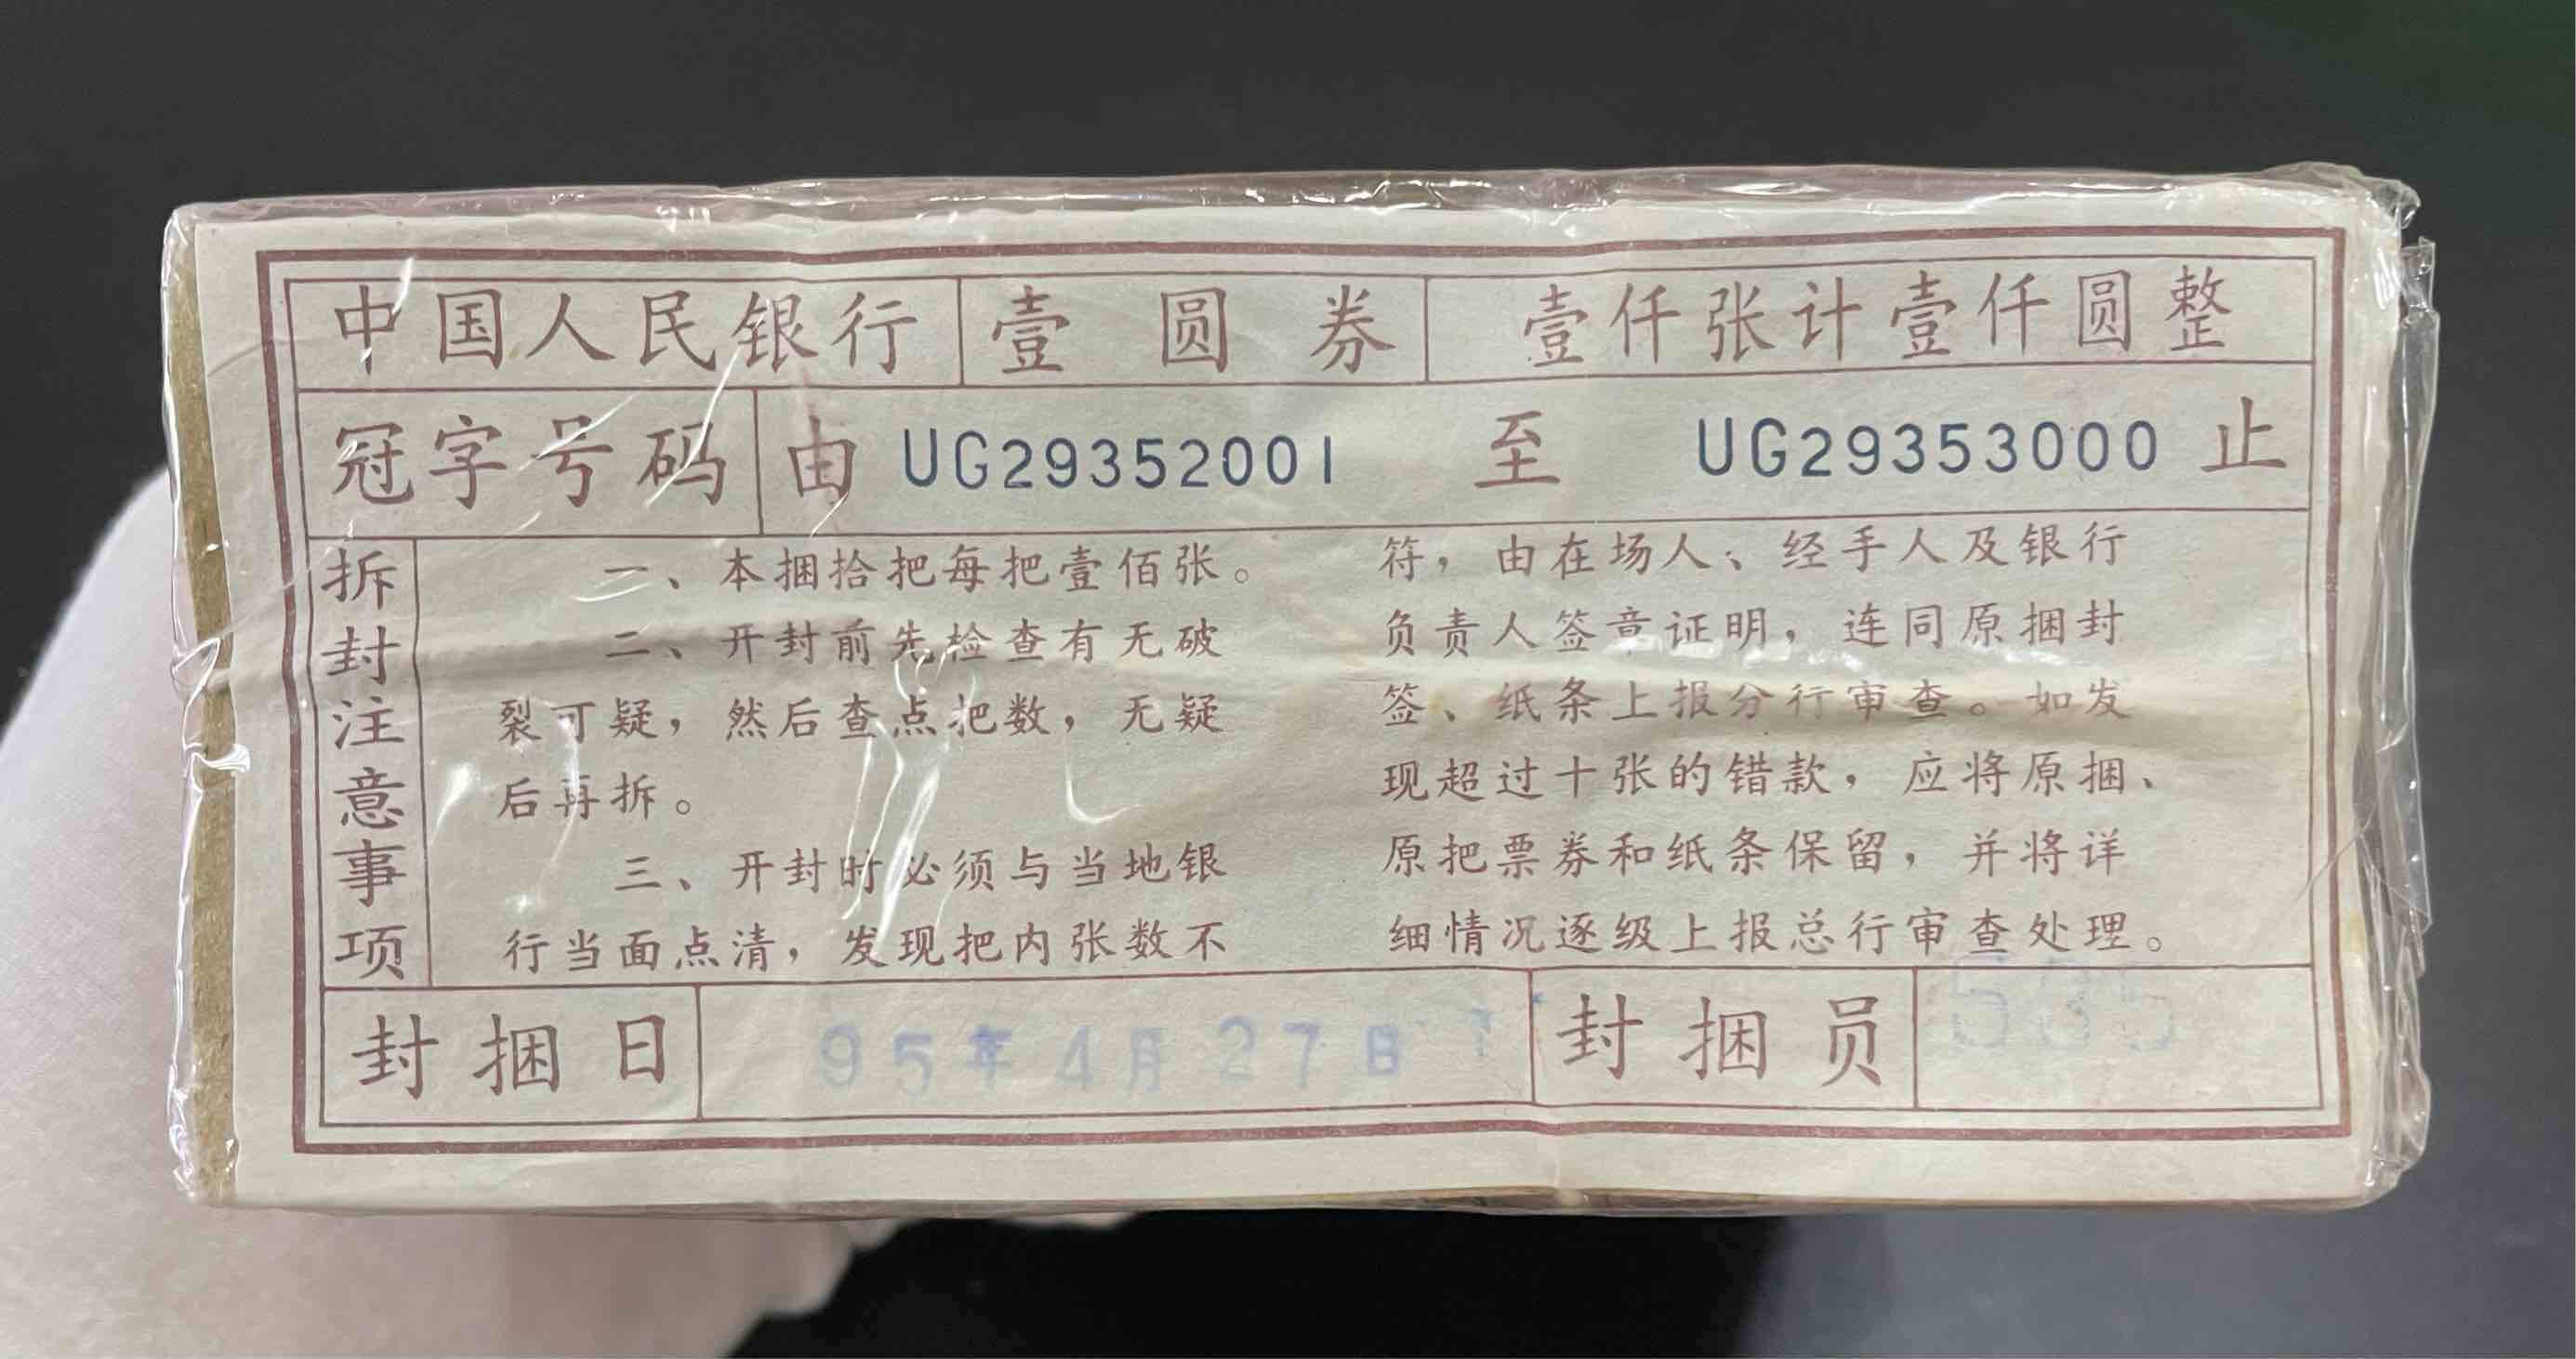 中国人民银行 壹圆券 壹仟张计壹仟圆整
冠字号码 由 UG29352001 至 UG29353000 止
拆封注意事项
一、本捆拾把每把壹佰张。
二、开封前先检查有无破
裂可疑，然后查点把数，无疑
后再拆。
三、开封时必须与当地银
行当面点清，发现把内张数不
符，由在场人、经手人及银行
负责人签章证明，连同原捆封
签、纸条上报分行审查。如发
现超过十张的错款，应将原捆、
原把票券和纸条保留，并将详
细情况逐级上报总行审查处理。
封捆日 95年4月27日 封捆员